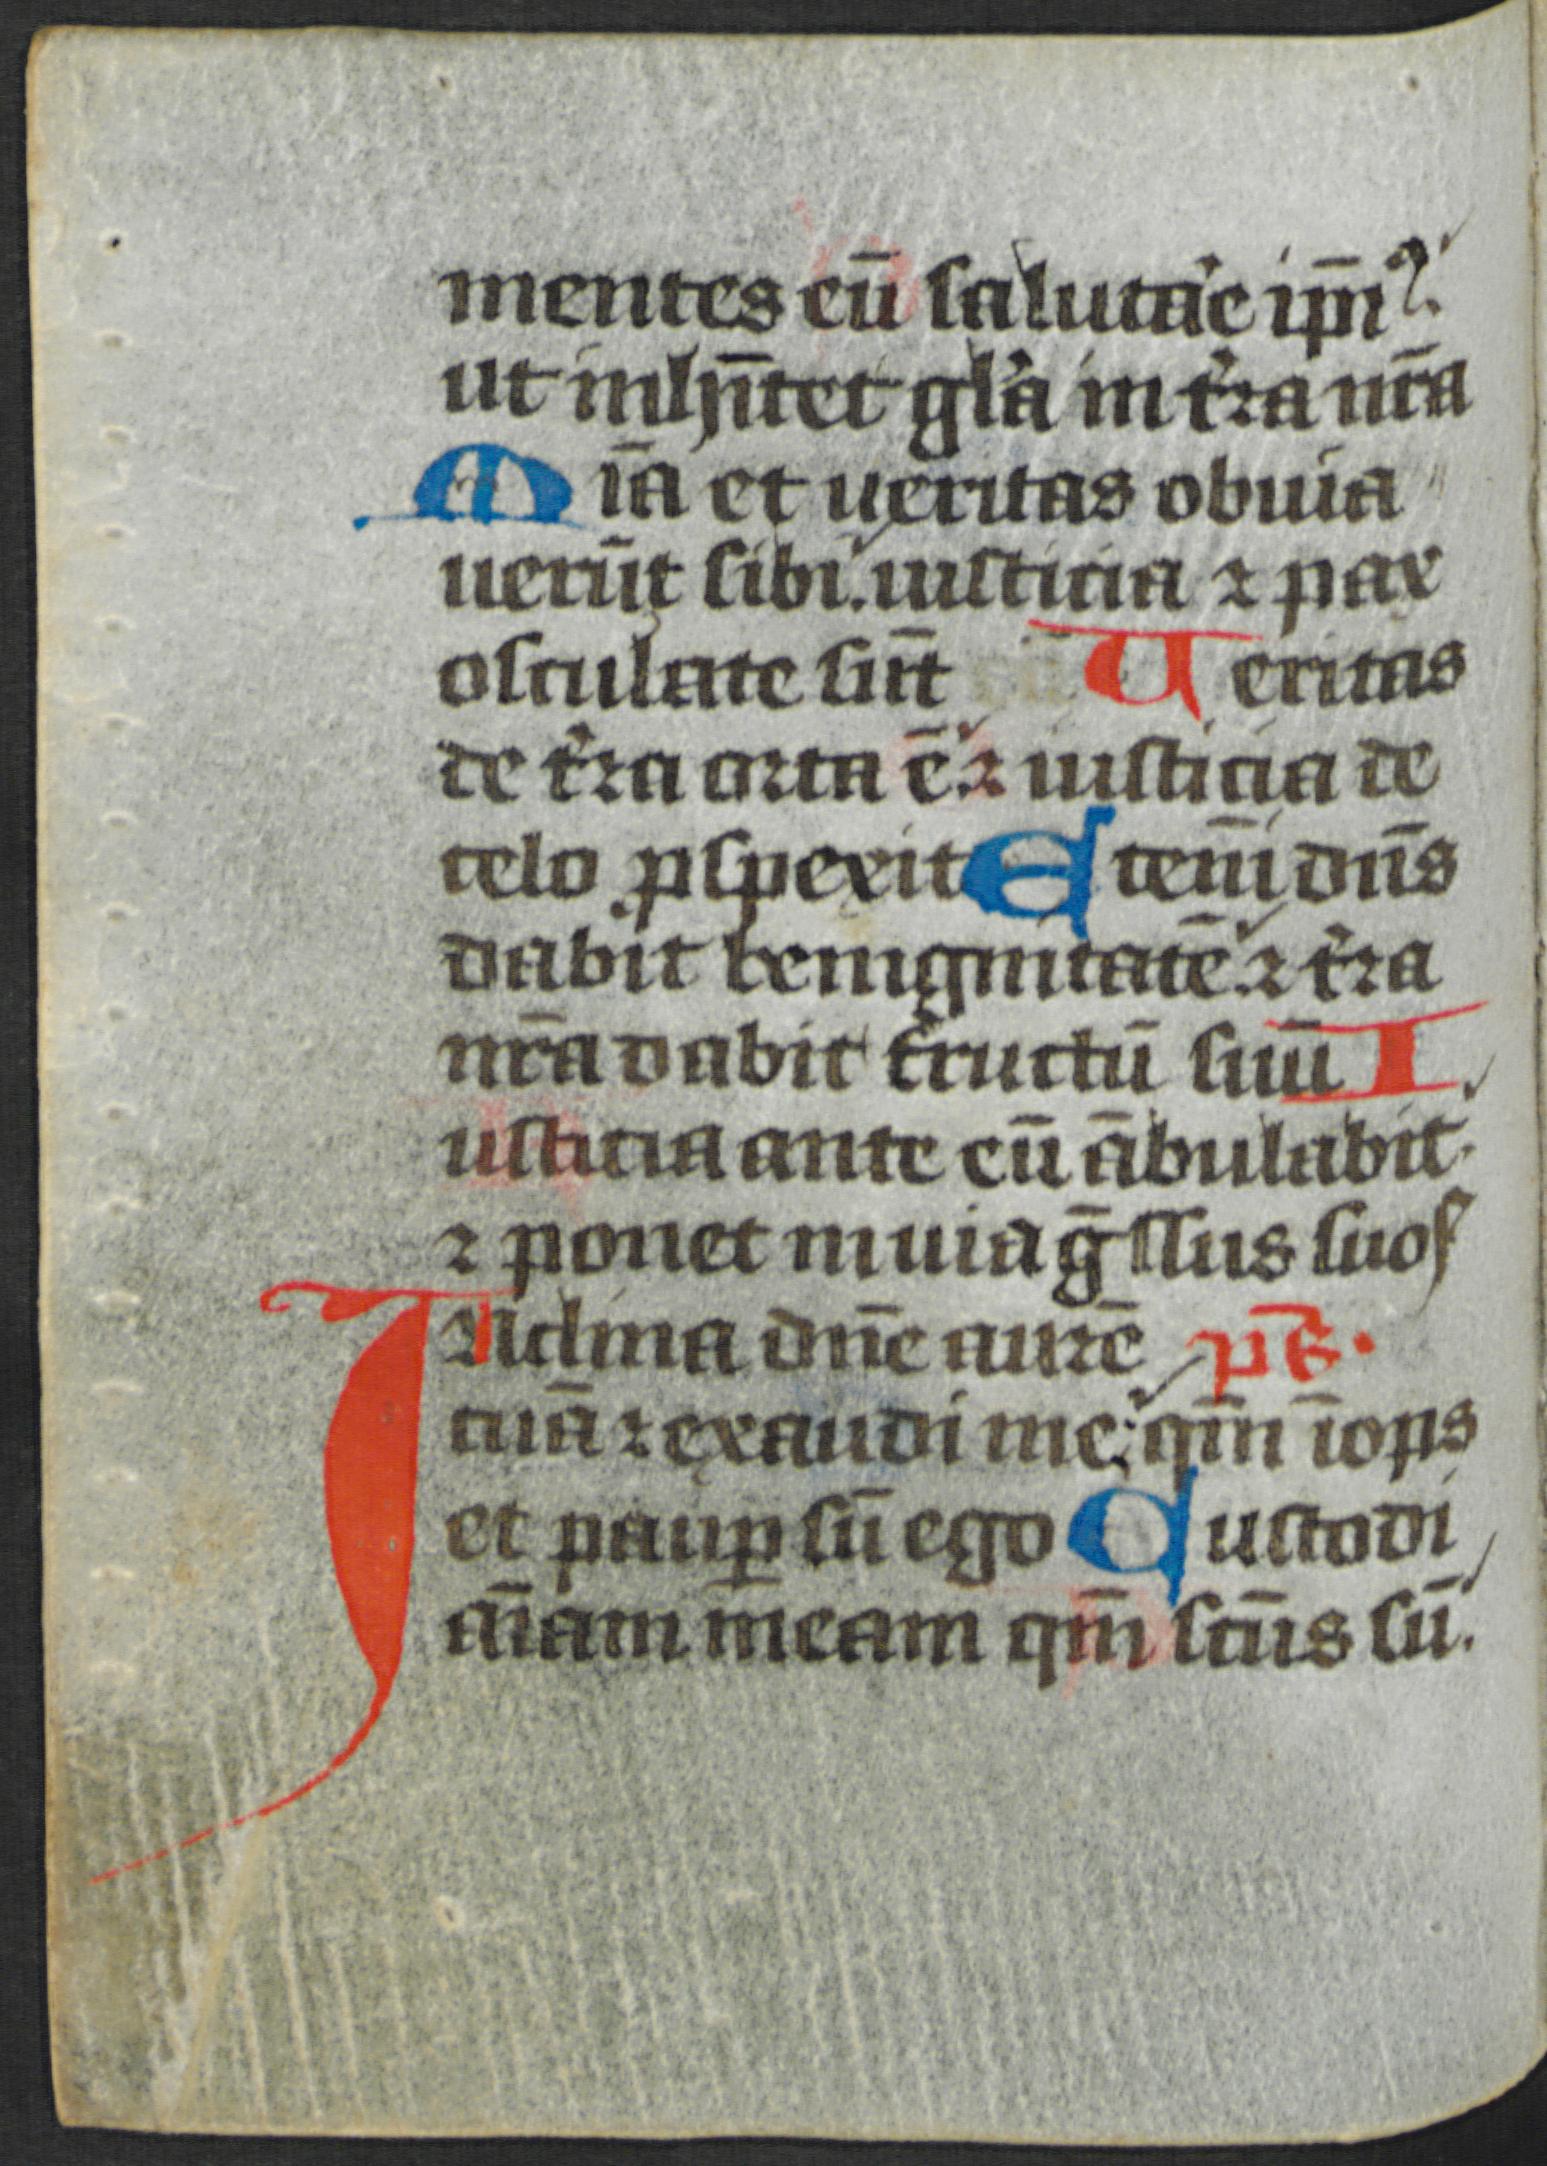 mentes eū saluta᷒e ip̄iꝰ.
ut inhītet gl᷒a in t᷒ra nr̄a
M īa et ueritas obuia
uerūt sibi. iusticia ⁊ pax
osculate sūt U eritas
de t᷒ra orta ē. ⁊ iusticia de
celo ꝓspexit E teni᷒ dn̄s
dabit benignitatē. ⁊ t᷒ra
nr̄a dabit fructū suū I
usticia ante eū ābulabit.
⁊ ponet in uia ḡssus suos
INclina dn̄e aurē pͫs.
tuā ⁊ exaudi me: qm̄ īops
et paup̲ sū ego C ustodi
aīam meam qm̄ sc̄us sū.